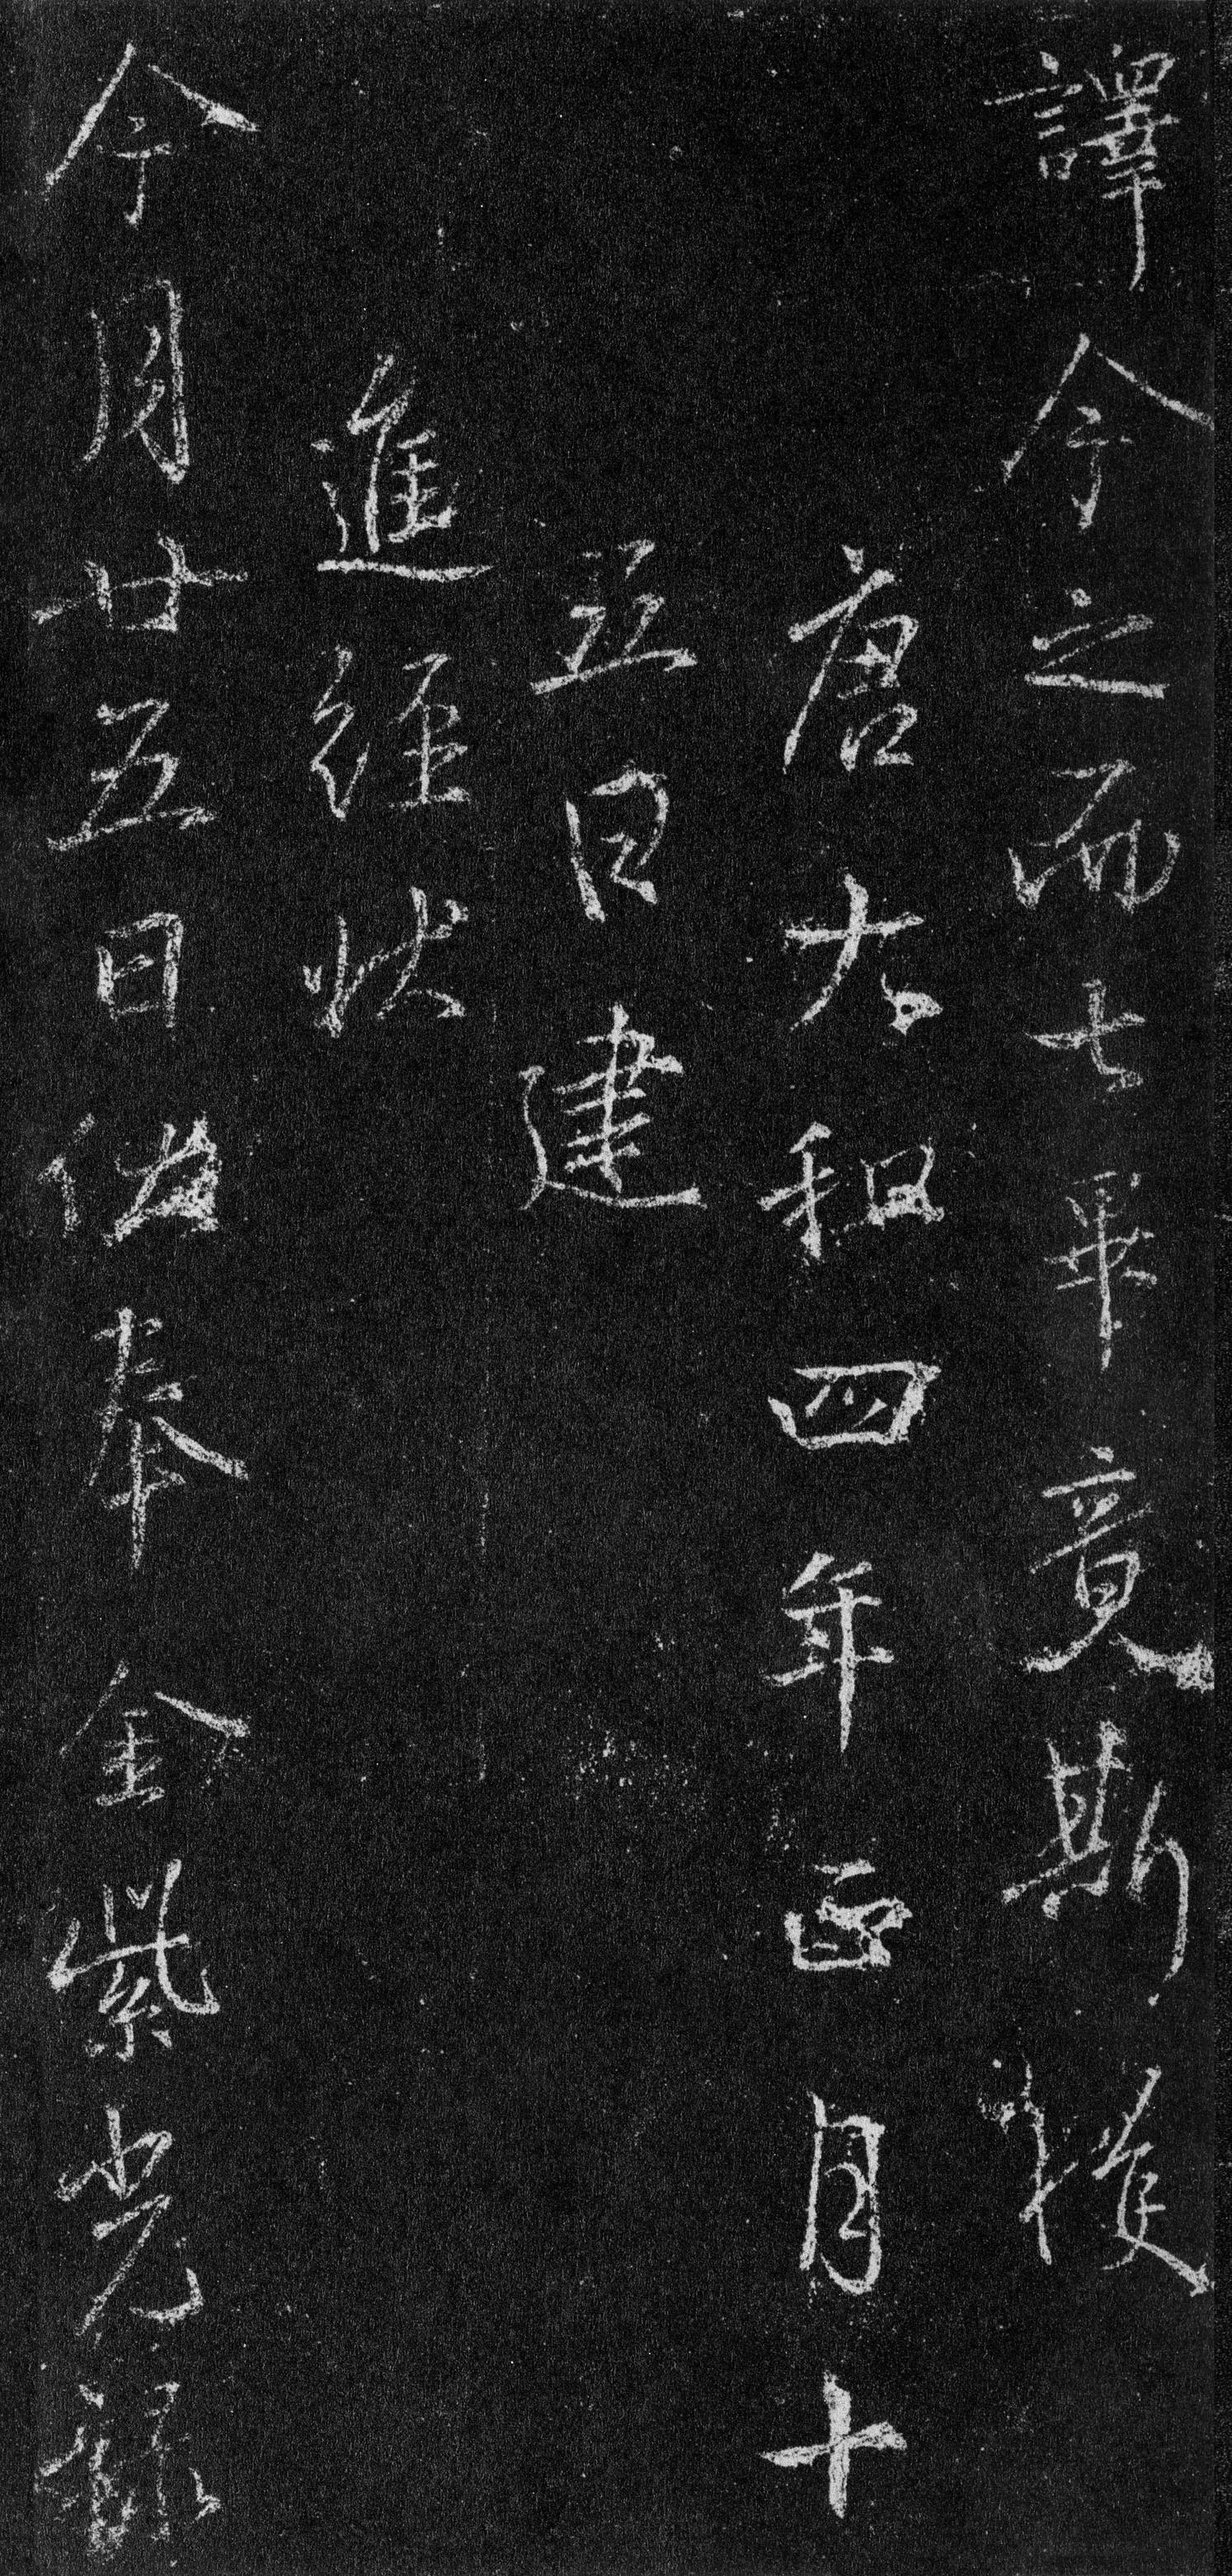 譯今之而七畢竟斯獲
唐大和四年正月十
五日建
進經狀
今月廿五日伏奉金紫光祿